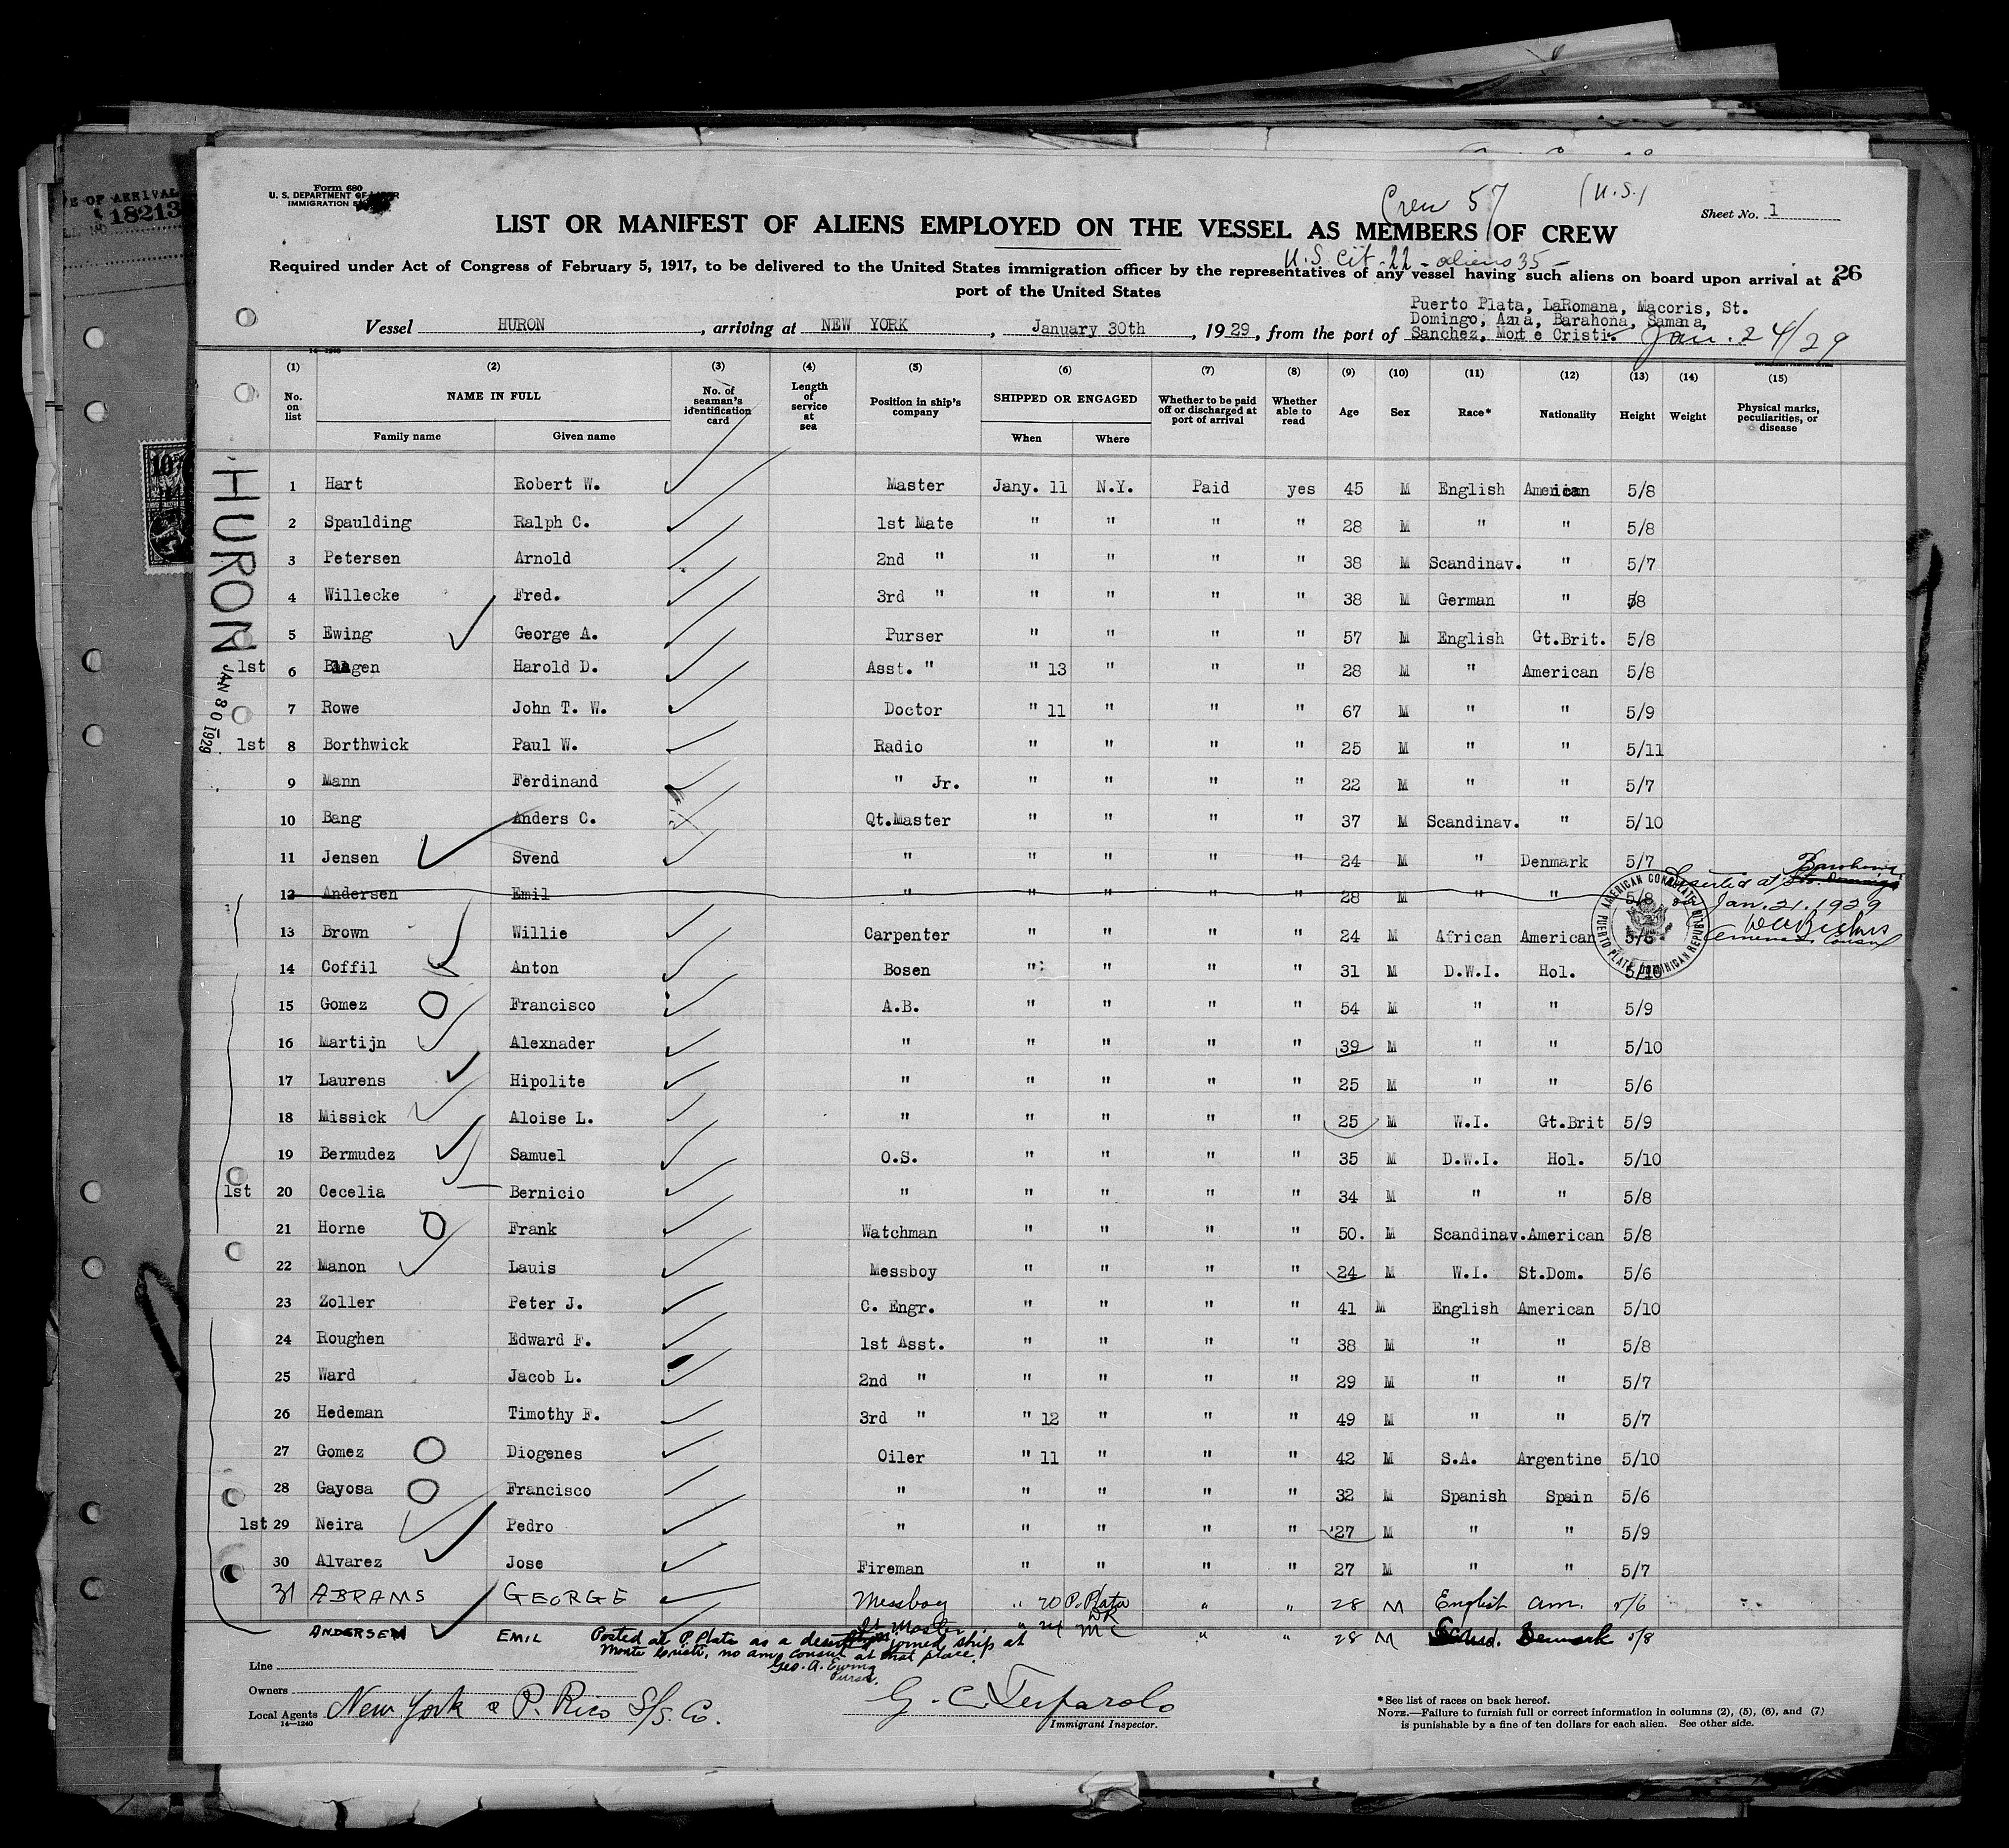 E OF ARRIVAL
18213
Form 680
U. S. DEPARTMENT OF LABOR
IMMIGRATION
Crew 57 (U.S.)
Sheet No. 1
LIST OR MANIFEST OF ALIENS EMPLOYED ON THE VESSEL AS MEMBERS OF CREW
U.S Cit - 22 - aliens 35 -
Required under Act of Congress of February 5, 1917, to be delivered to the United States immigration officer by the representatives of any vessel having such aliens on board upon arrival at a
26
port of the United States
Puerto Plata, LaRomana, Macoris, St.
Domingo, Azua, Barahona, Samana,
Vessel HURON, arriving at NEW YORK, January 30th, 1929, from the port of Sanchez, Monte Cristi. Jan. 24/29
14-1240
(1) (2) (3) (4) (5) (6) (7) (8) (9) (10) (11) (12) (13) (14) (15)
No. on list NAME IN FULL No. of seaman's identification card Length of service at sea Position in ship's company SHIPPED OR ENGAGED Whether to be paid off or discharged at port of arrival Whether able to read Age Sex Race* Nationality Height Weight Physical marks, peculiarities, or disease
Family name Given name When Where
HURON
JAN 30 1929
1 Hart Robert W. Master Jany. 11 N.Y. Paid yes 45 M English American 5/8
2 Spaulding Ralph C. 1st Mate " " " " 28 M " " 5/8
3 Petersen Arnold 2nd " " " " " 38 M Scandinav. " 5/7
4 Willecke Fred. 3rd " " " " " 38 M German " 5/8
5 Ewing George A. Purser " " " " 57 M English Gt.Brit. 5/8
1st 6 Harold D. Asst. " " 13 " " " 28 M " American 5/8
7 Rowe John T. W. Doctor " 11 " " " 67 M " " 5/9
1st 8 Borthwick Paul W. Radio " " " " 25 M " " 5/11
9 Mann Ferdinand " Jr. " " " " 22 M " " 5/7
10 Bang Anders C. Qt.Master " " " " 37 M Scandinav. " 5/10
11 Jensen Svend " " " " " 24 M " Denmark 5/7
12 Andersen Emil " " " " " 28 M " " 5/8
Barahona
Deserted at Sto. Domingo
Jan. 21. 1929
American Consul
AMERICAN CONSULATE PUERTO PLATA, DOMINICAN REPUBLIC
13 Brown Willie Carpenter " " " " 24 M African American 5/6
14 Coffil Anton Bosen " " " " 31 M D.W.I. Hol. 5/10
15 Gomez Francisco A.B. " " " " 54 M " " 5/9
16 Martijn Alexnader " " " " " 39 M " " 5/10
17 Laurens Hipolite " " " " " 25 M " " 5/6
18 Missick Aloise L. " " " " " 25 M W.I. Gt.Brit 5/9
19 Bermudez Samuel O.S. " " " " 35 M D.W.I. Hol. 5/10
1st 20 Cecelia Bernicio " " " " " 34 M " " 5/8
21 Horne Frank Watchman " " " " 50. M Scandinav. American 5/8
22 Manon Lauis Messboy " " " " 24 M W.I. St.Dom. 5/6
23 Zoller Peter J. C. Engr. " " " " 41 M English American 5/10
24 Roughen Edward F. 1st Asst. " " " " 38 M " " 5/8
25 Ward Jacob L. 2nd " " " " " 29 M " " 5/7
26 Hedeman Timothy F. 3rd " " 12 " " " 49 M " " 5/7
27 Gomez Diogenes Oiler " 11 " " " 42 M S.A. Argentine 5/10
28 Gayosa Francisco " " " " " 32 M Spanish Spain 5/6
1st 29 Neira Pedro " " " " " 27 M " " 5/9
30 Alvarez Jose Fireman " " " " 27 M " " 5/7
31 ABRAMS GEORGE Messboy " 20 P. Plata DR " " 28 M English Am. 5/6
ANDERSEN EMIL Qt Master " 24 M C " " 28 M Scand. Denmark 5/8
Posted at P. Plata as a deserter joined ship at
Monte Cristi, no am consul at that place.
Geo. A. Ewing
Purser.
Line
Owners
Local Agents New York & P. Rico S/S. Co.
14-1240
G. C.
Immigrant Inspector.
* See list of races on back hereof.
NOTE.—Failure to furnish full or correct information in columns (2), (5), (6), and (7)
is punishable by a fine of ten dollars for each alien. See other side.